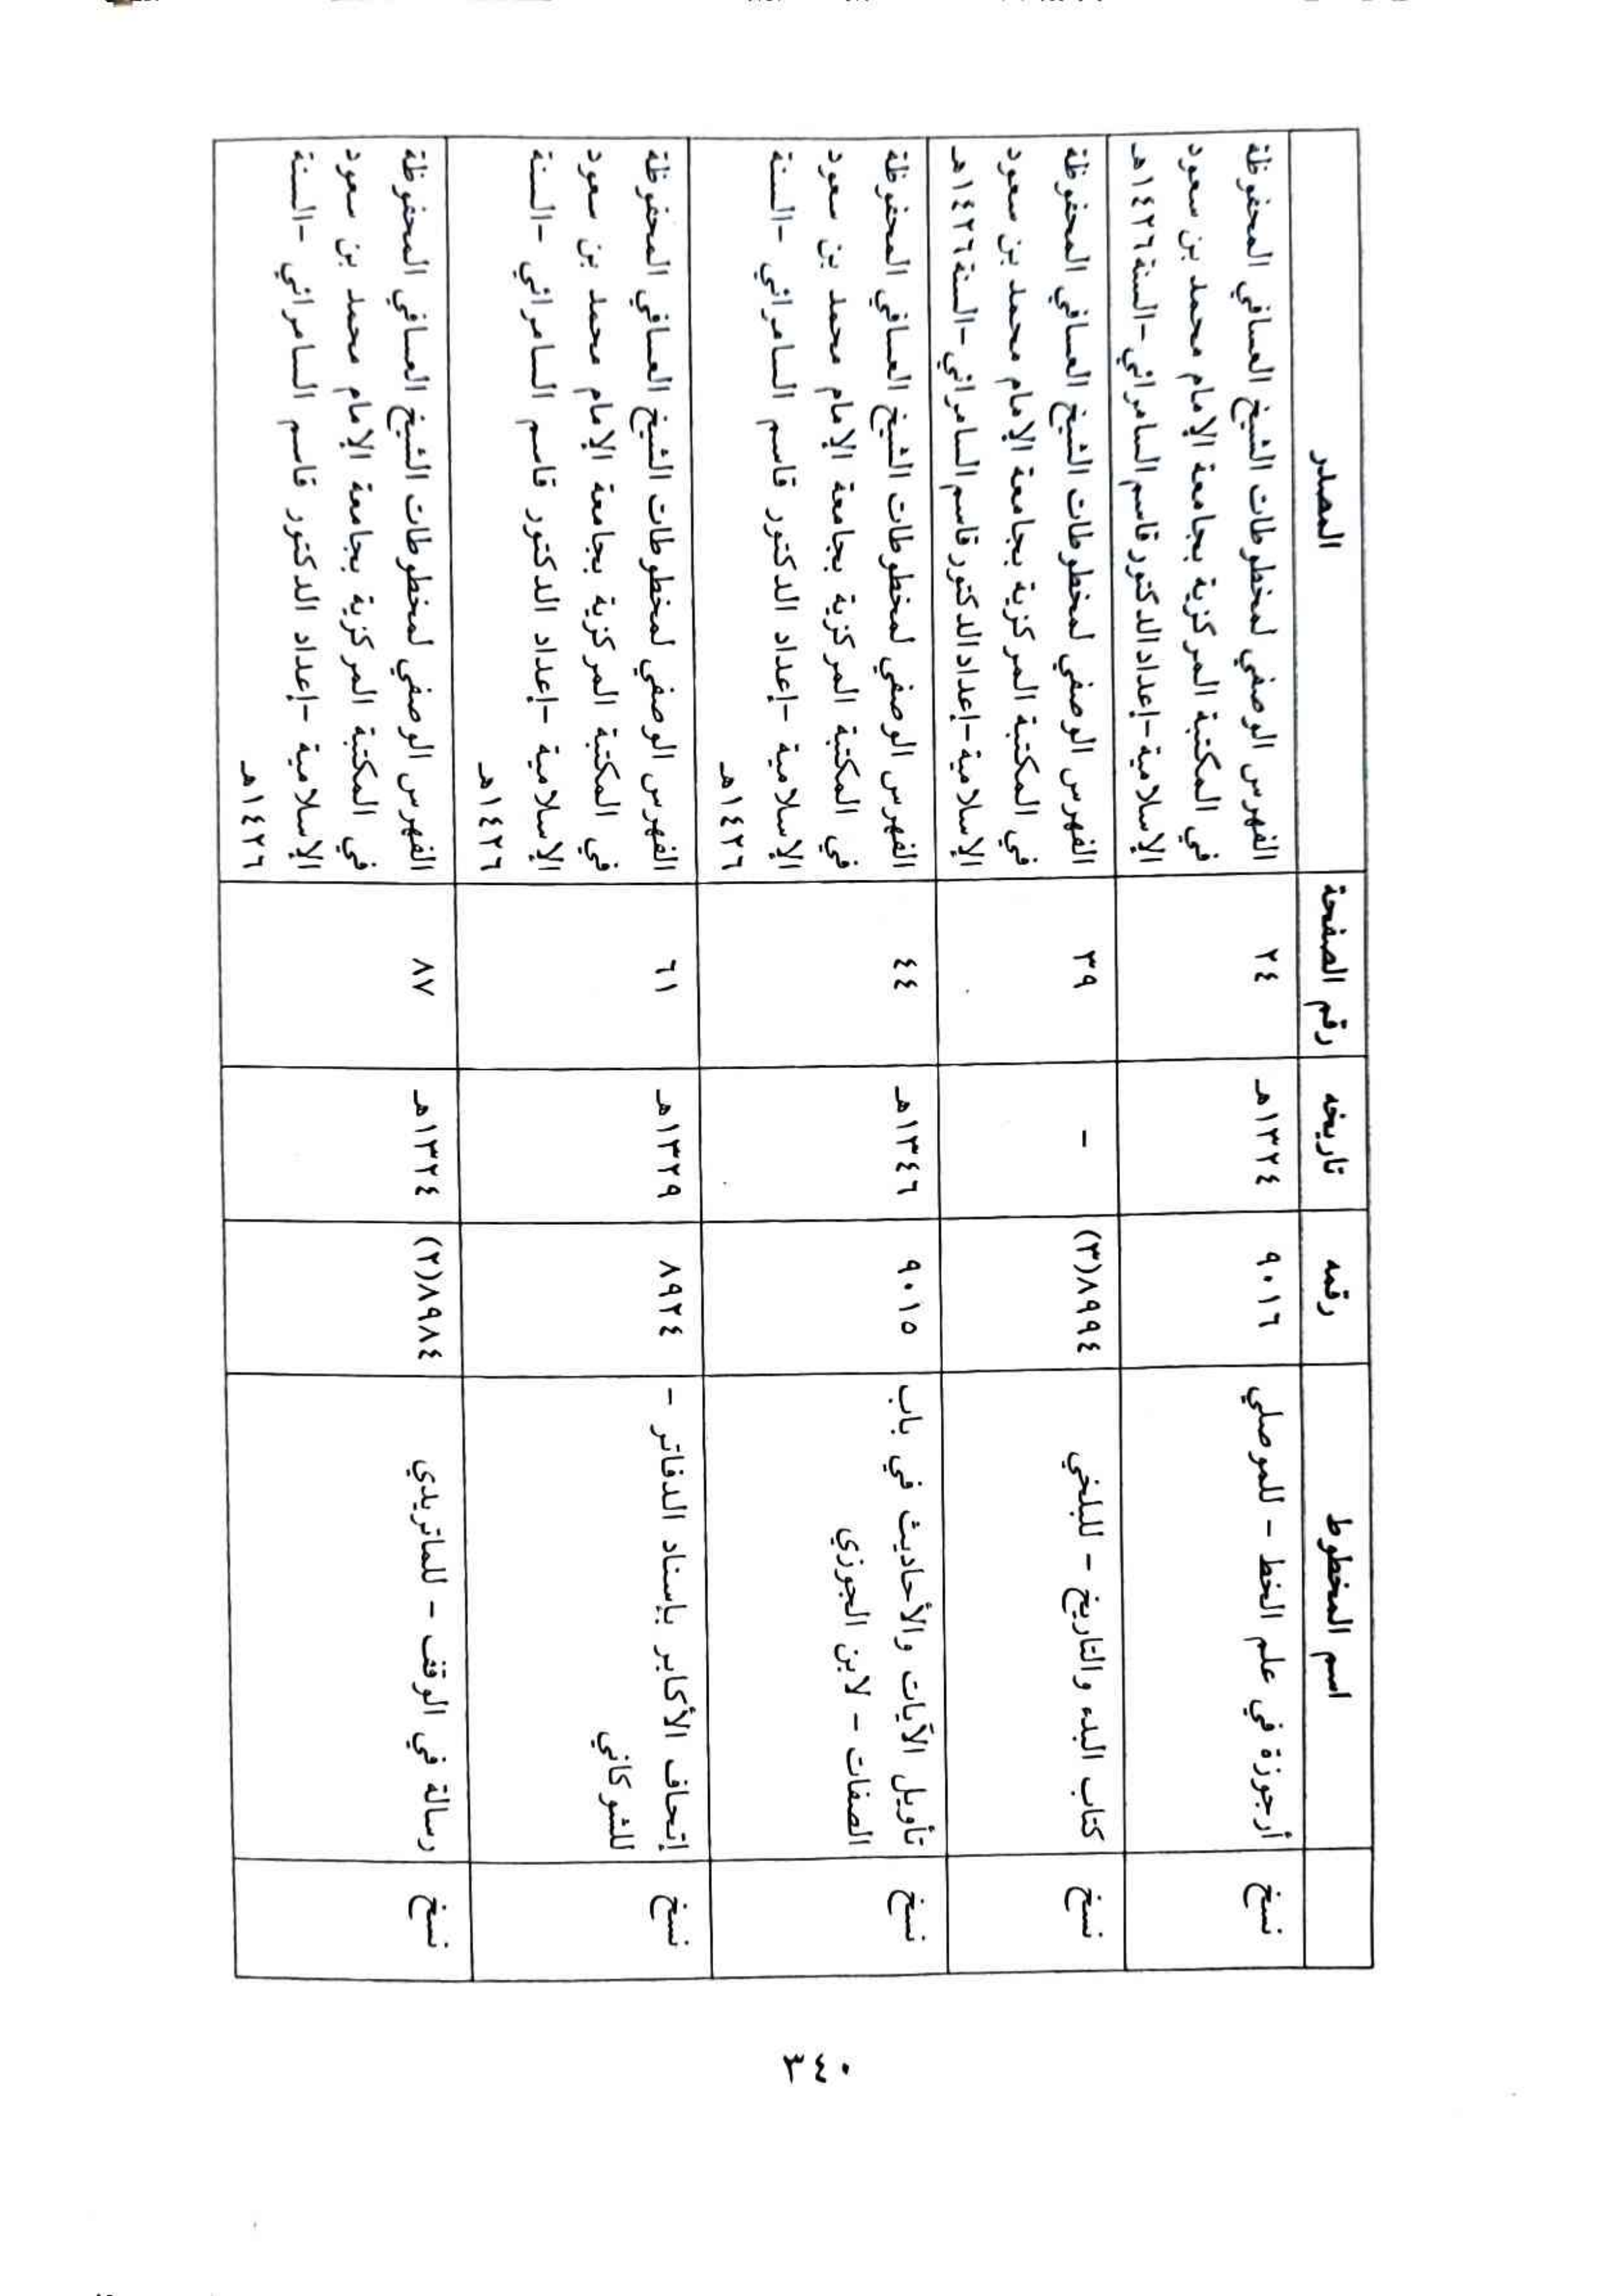 اسم المخطوط رقمه تاريخه رقم الصفحة المصدر
نسخ أرجوزة في علم الخط - للموصلي ٩٠١٦ ١٣٢٤هـ ٢٤ الفهرس الوصفي لمخطوطات الشيخ العسافي المحفوظة
في المكتبة المركزية بجامعة الإمام محمد بن سعود
الإسلامية -إعداد الدكتور قاسم السامرائي -السنة ١٤٢٦هـ
نسخ كتاب البدء والتاريخ - للبلخي ٨٩٩٤(٣) - ٣٩ الفهرس الوصفي لمخطوطات الشيخ العسافي المحفوظة
في المكتبة المركزية بجامعة الإمام محمد بن سعود
الإسلامية -إعداد الدكتور قاسم السامرائي -السنة ١٤٢٦هـ
نسخ تأويل الآيات والأحاديث في باب ٩٠١٥ ١٣٤٦هـ ٤٤ الفهرس الوصفي لمخطوطات الشيخ العسافي المحفوظة
الصفات - لابن الجوزي في المكتبة المركزية بجامعة الإمام محمد بن سعود
الإسلامية -إعداد الدكتور قاسم السامرائي -السنة
١٤٢٦هـ
نسخ إتحاف الأكابر بإسناد الدفاتر - ٨٩٢٤ ١٣٢٩هـ ٦١ الفهرس الوصفي لمخطوطات الشيخ العسافي المحفوظة
للشوكاني في المكتبة المركزية بجامعة الإمام محمد بن سعود
الإسلامية -إعداد الدكتور قاسم السامرائي -السنة
١٤٢٦هـ
نسخ رسالة في الوقف - للماتريدي ٨٩٨٤(٢) ١٣٢٤هـ ٨٧ الفهرس الوصفي لمخطوطات الشيخ العسافي المحفوظة
في المكتبة المركزية بجامعة الإمام محمد بن سعود
الإسلامية -إعداد الدكتور قاسم السامرائي -السنة
١٤٢٦هـ
٣٤٠